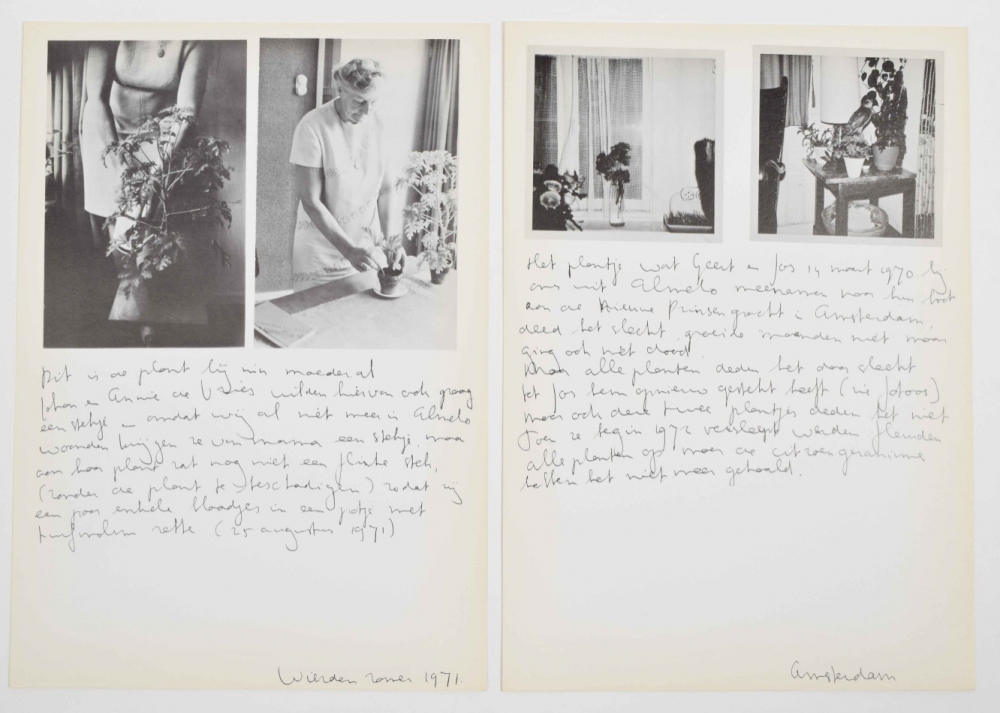 Dit is de plant bij mijn moeder al
Johan en Annie de Vries wilden hiervan ook graag
een stekje en omdat wij al niet meer in Almelo
woonden krijgen ze van mama een stekje, maar
aan haar plant zat nog niet een flinke stek,
(zonder de plant te beschadigen) zodat zij
een paar enkele blaadjes in een potje met
turfmolm zette (25 augustus 1971)
Wierden zomer 1971.
Het plantje wat Geert en Jos 14 maart 1970 bij
ons uit Almelo meenamen naar hun boot
aan de Nieuwe Prinsengracht in Amsterdam,
deed het slecht, groeide maanden niet maar
ging ook niet dood.
Maar alle planten deden het daar slecht
tot Jos hem opnieuw gestekt heeft (zie foto's)
maar ook deze twee plantjes deden het niet
Toen ze begin 1972 versleept werden fleurden
alle planten op, maar de citroengeraniums
hebben het niet meer gehaald.
Amsterdam